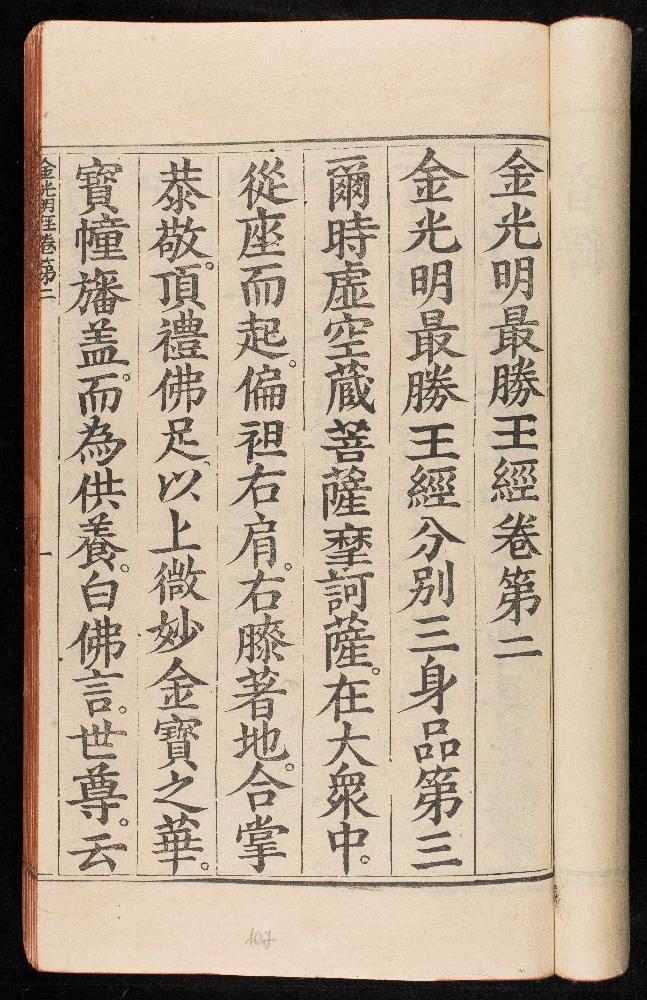 金光明最勝王經卷第二
金光明最勝王經分别三身品第三
爾時虛空蔵菩薩摩訶薩。在大衆中。
從座而起。偏袒右肩。右膝著地。合掌
恭敬。頂禮佛足。以上微妙金寶之華。
寳幢旛盖。而為供養。白佛言。世尊。云
金光明經卷第二
一
107